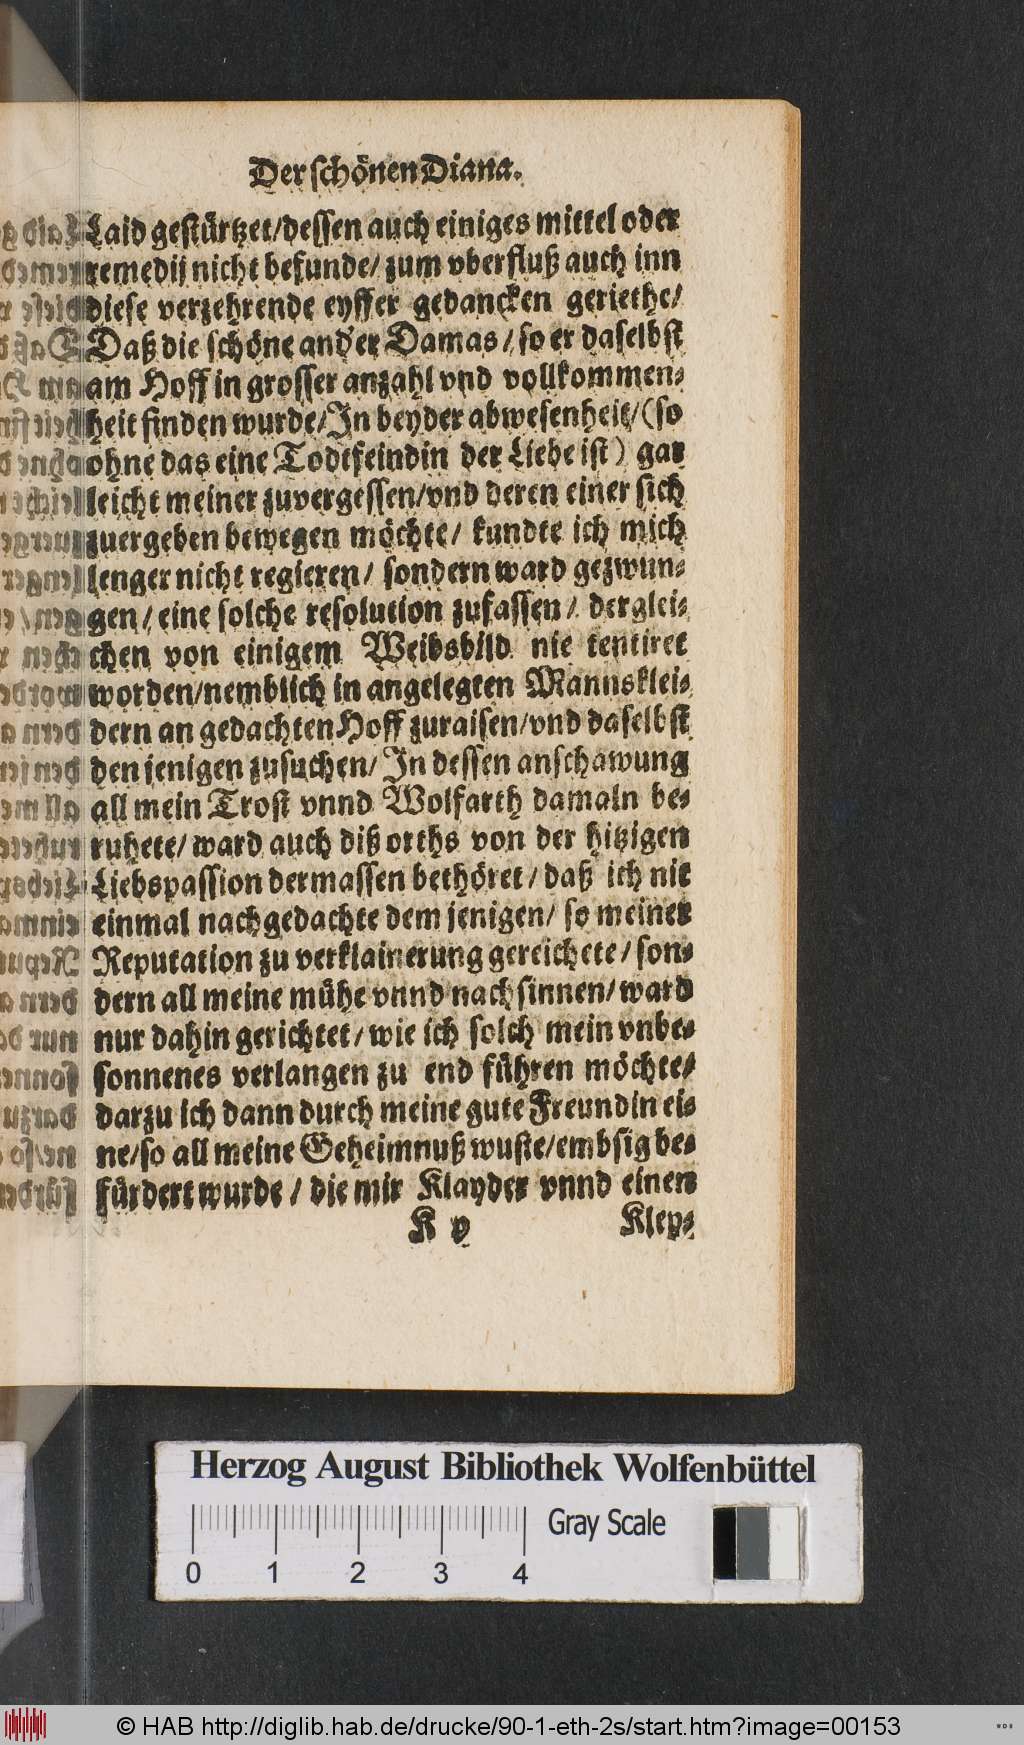 Der schönen Diana.
Laid gestürtzet/dessen auch einiges mittel oder
remedij nicht befunde/ zum vberfluß auch inn
diese verzehrende eyffer gedancken geriethe/
Daß die schöne ander Damas/ so er daselbst
am Hoff in grosser anzahl vnd vollkommen-
heit finden wurde/ In beyder abwesenheit/ (so
ohne das eine Todtfeindin der Liebe ist) gar
leicht meiner zuvergessen/vnd deren einer sich
zuergeben bewegen möchte/ kundte ich mich
lenger nicht regieren/ sondern ward gezwun-
gen/ eine solche resolution zufassen/ derglei-
chen von einigem Weibsbild nie tentiret
worden/nemblich in angelegten Mannsklei-
dern an gedachten Hoff zuraisen/vnd daselbst
den jenigen zusuchen/ In dessen anschawung
all mein Trost vnnd Wolfarth damaln be-
ruhete/ ward auch diß orths von der hitzigen
Liebspassion dermassen bethöret/ daß ich nit
einmal nachgedachte dem jenigen/ so meiner
Reputation zu verklainerung gereichete/ son-
dern all meine mühe vnnd nachsinnen/ ward
nur dahin gerichtet/ wie ich solch mein vnbe-
sonnenes verlangen zu end führen möchte/
darzu ich dann durch meine gute Freundin ei-
ne/so all meine Geheimnuß wuste/embsig be-
fürdert wurde / die mir Klayder vnnd einen
K v Klep-
Herzog August Bibliothek Wolfenbüttel
Gray Scale
0 1 2 3 4
© HAB http://diglib.hab.de/drucke/90-1-eth-2s/start.htm?image=00153